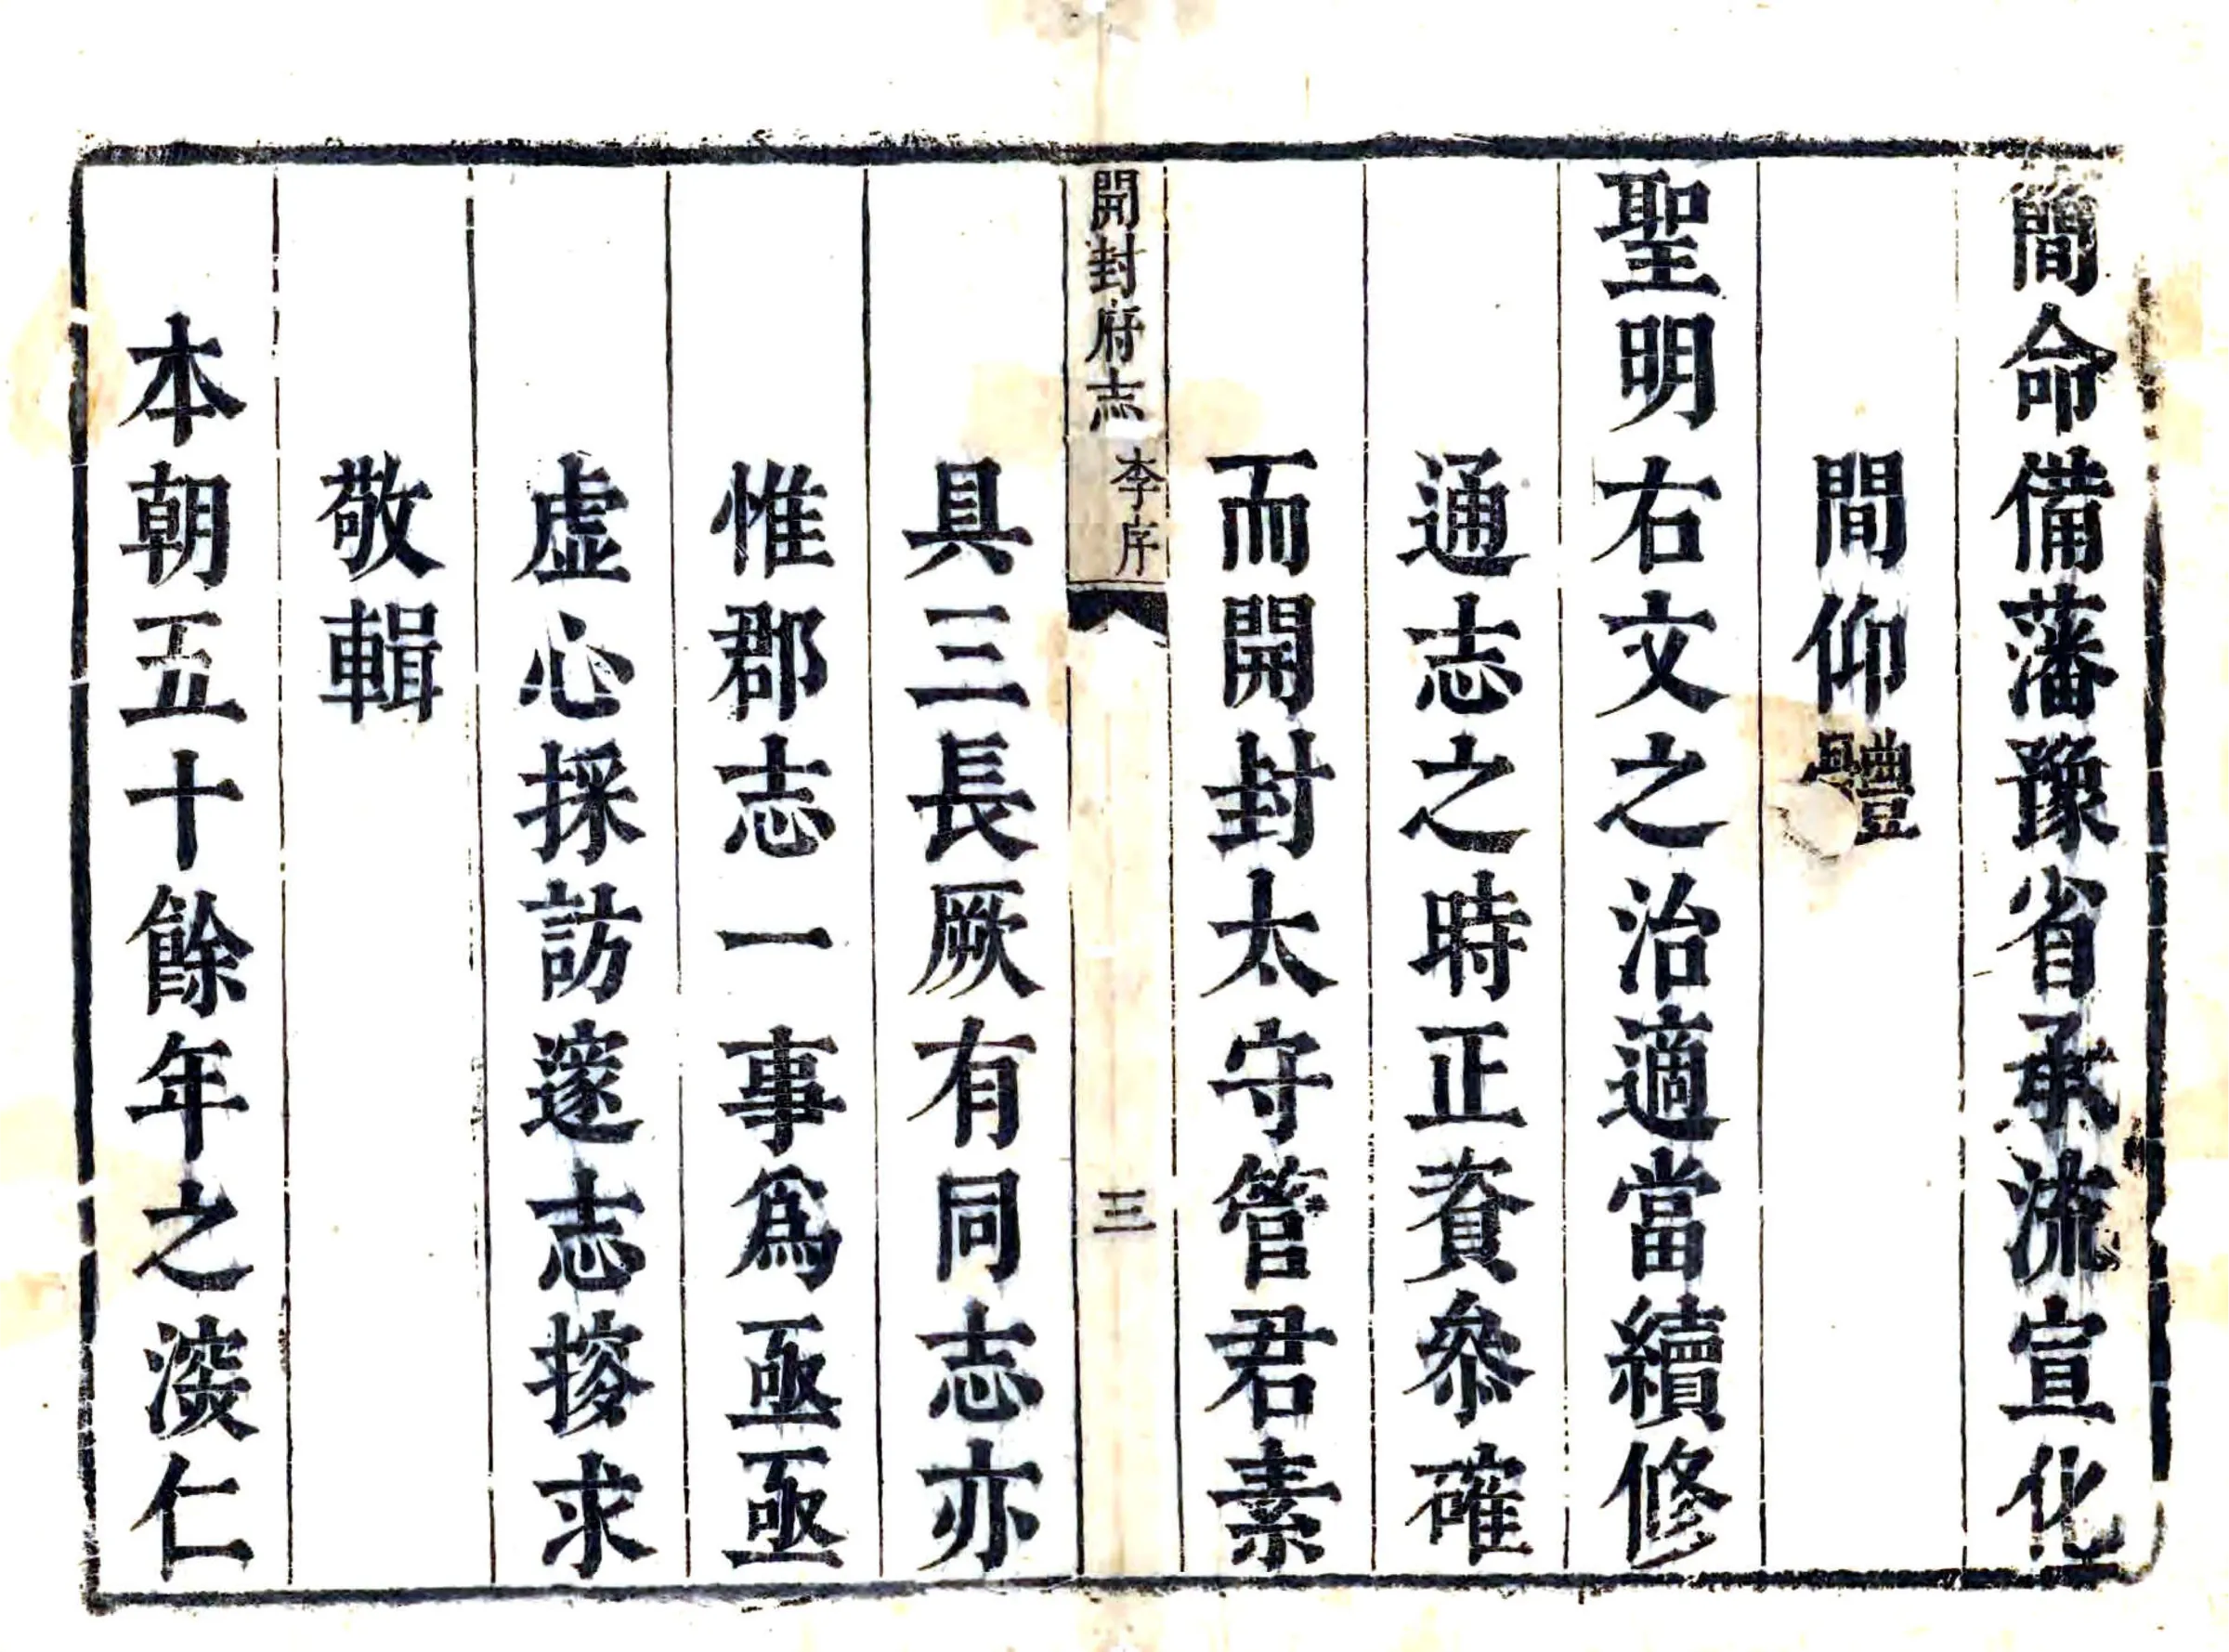 簡命備藩豫省承流宣化
間仰體
聖明右文之治適當續修
通志之時正資叅確
而開封太守管君素
開封府志
李序
三
具三長厥有同志亦
惟郡志一事爲亟亟
虚心採訪邃志搜求
敬輯
本朝五十餘年之深仁